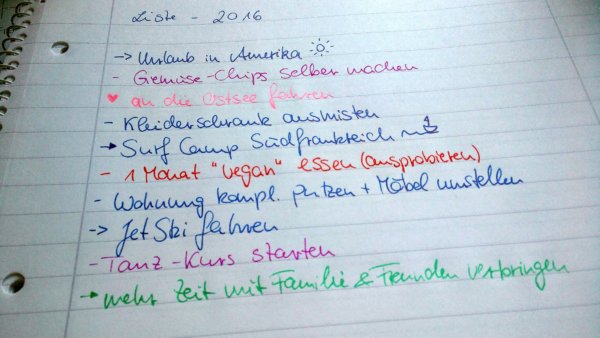 Liste - 2016
-> Urlaub in Amerika
- Gemüse-Chips selber machen
♥ an die Ostsee fahren
- Kleiderschrank ausmisten
-> Surf Camp Südfrankreich
- 1 Monat "vegan" essen (ausprobieren)
- Wohnung kompl. putzen + Möbel umstellen
-> Jet Ski fahren
- Tanz-Kurs starten
-> mehr Zeit mit Familie & Freunden verbringen